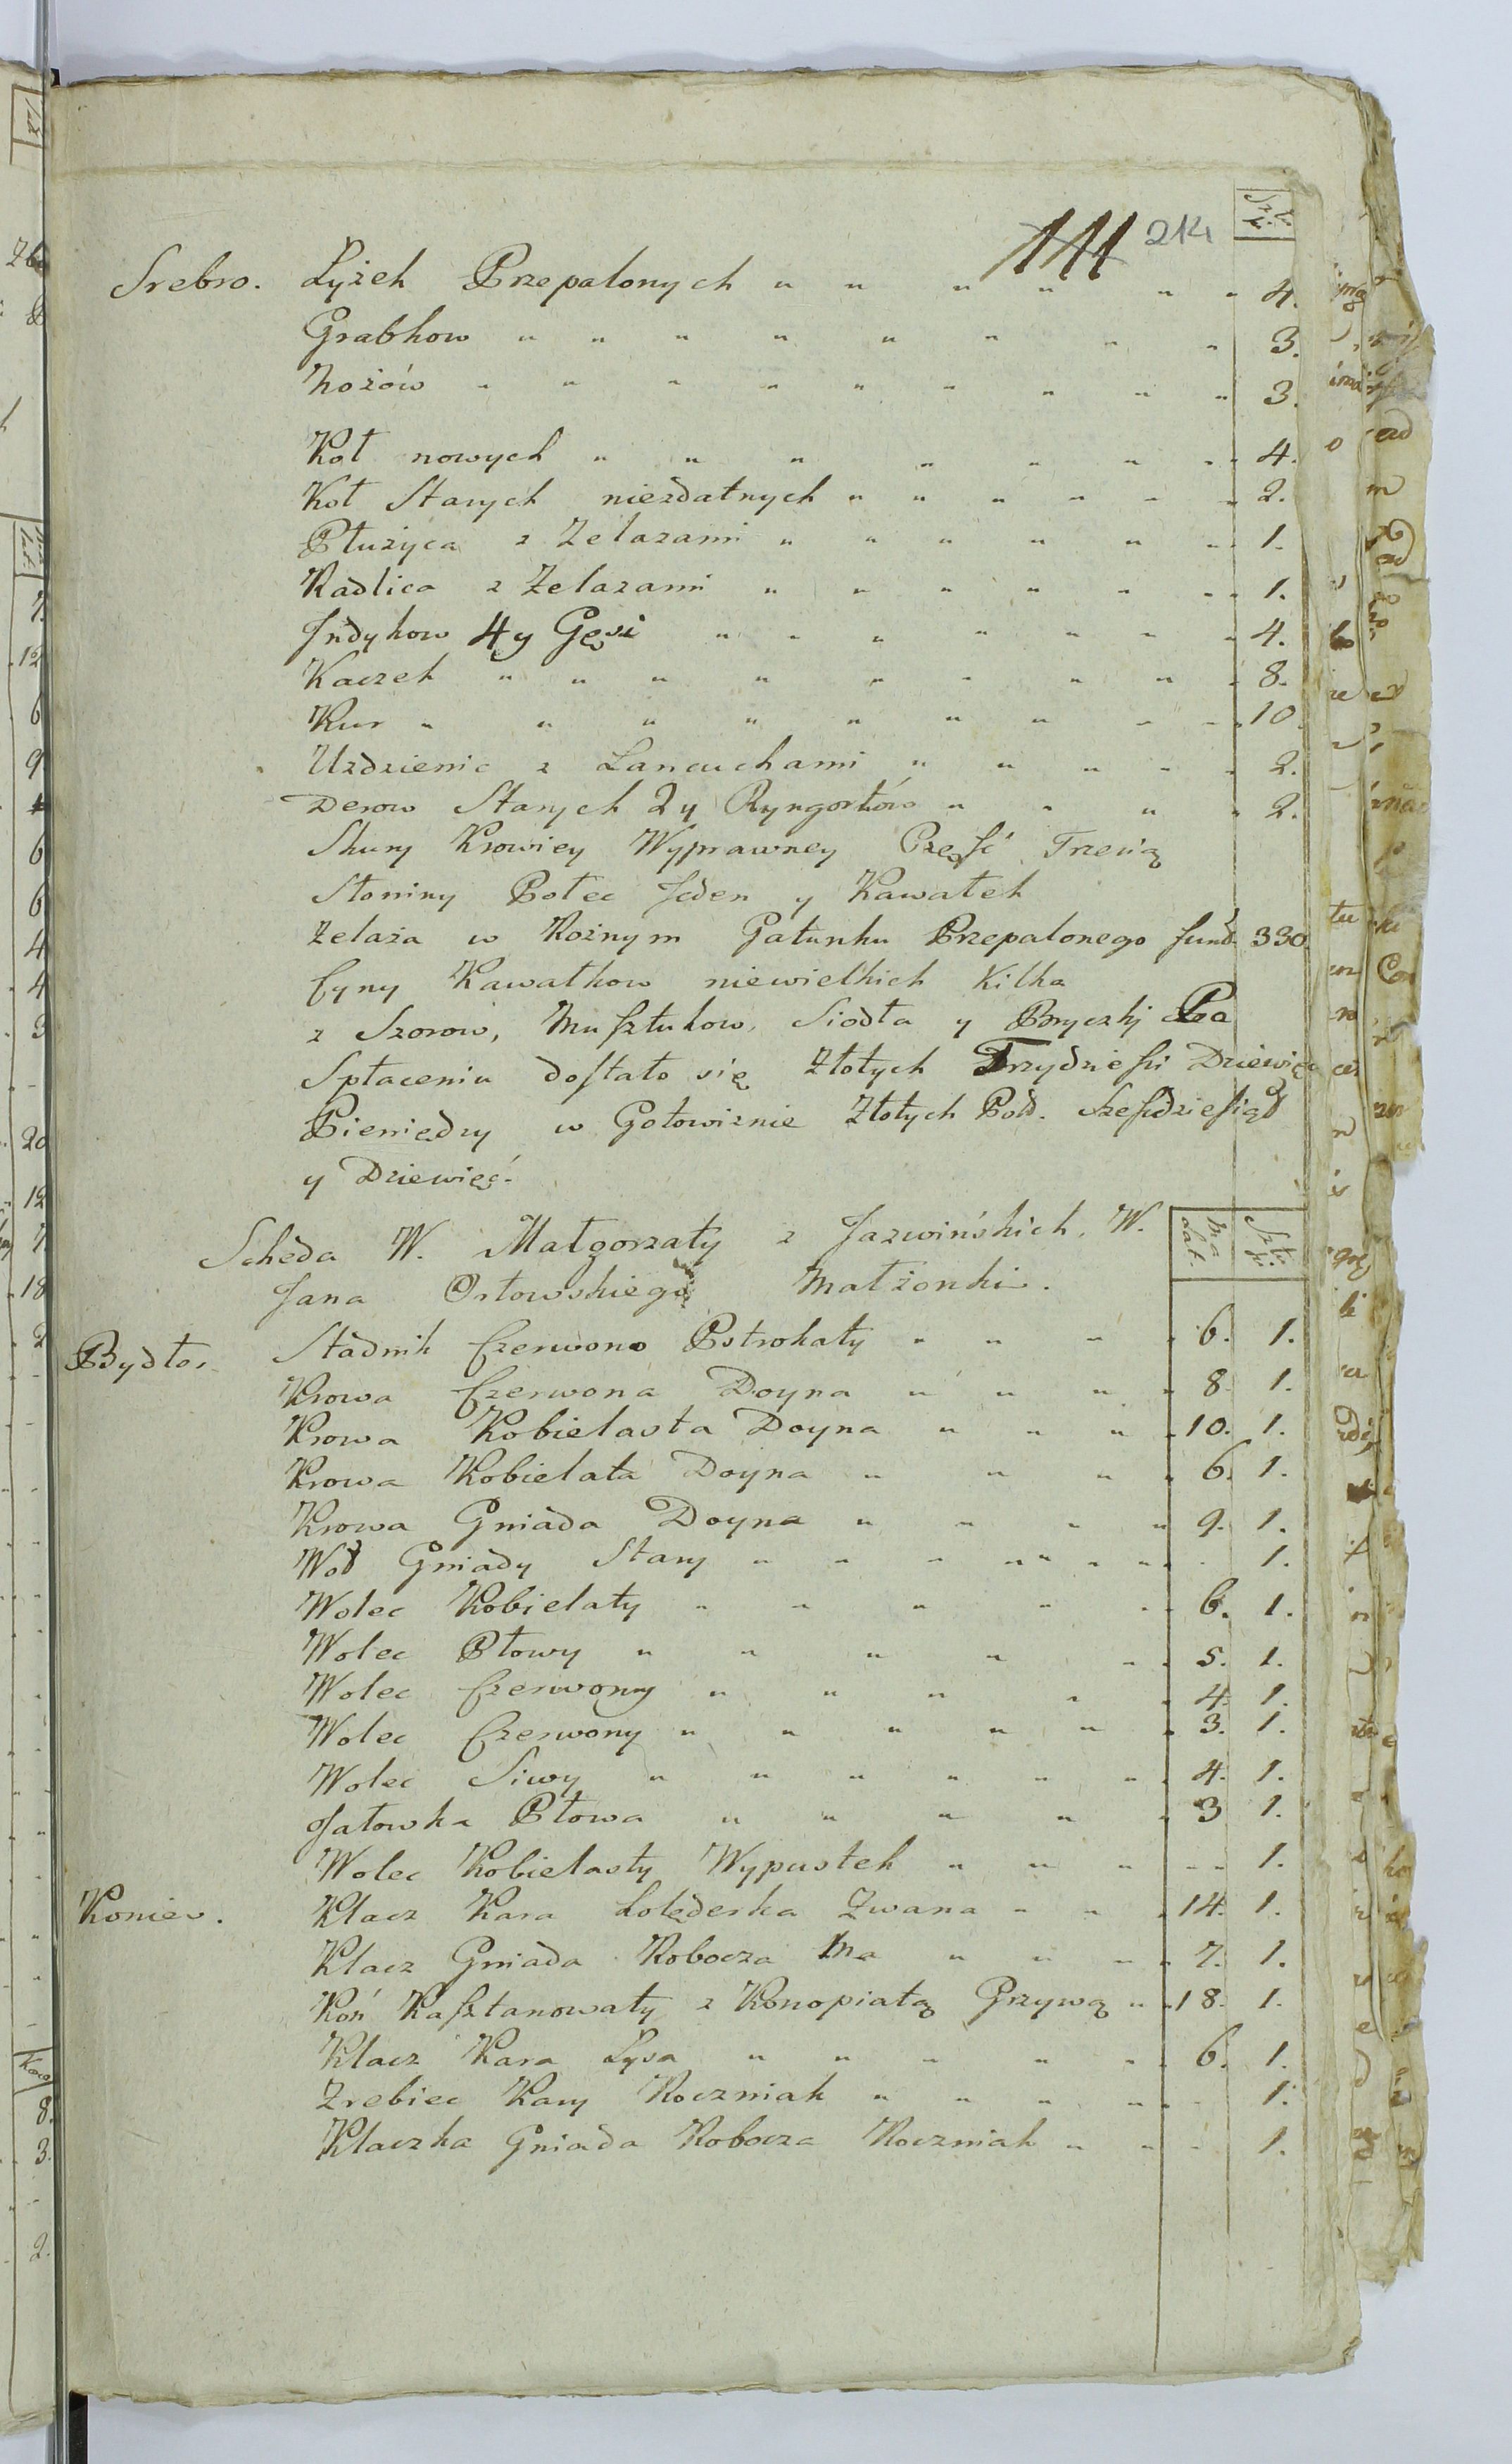 111 214
Sztk.
Srebro. Łyżek Przepalonych " " " " " " 4.
Grabkow " " " " " " " " 3.
Nożów " " " " " " " " " 3.
Koł nowych " " " " " " " " 4.
Koł Starych niezdatnych " " " " " " 2.
Płużyca z Zelazami " " " " " " 1.
Radlica z Zelazami " " " " " " " 1.
Jndykow 4 y Gęsi " " " " " " " 4.
Kaczek " " " " " " " " " 8.
Kur " " " " " " " " " 10.
Uzdzienic z Lancuchami " " " " " 2.
Derow Starych 2 y Ryngortów " " " " 2.
Skury Krowiey Wyprawney Część Trzecią
Słoniny Połec Jeden y Kawałek
Zelaża w Rożnym Gatunku Przepalonego fund. 330.
Cyny Kawałkow niewielkich Kilka
z Szorow, Musztukow, Siodła y Bryczki Po
Spłaceniu dostało się Złotych Trzydzieści Dziewięć
Pieniędzy w Gotowiznie Złotych Pols. Sześćdziesiąd
y Dziewięć.
Scheda W. Małgorzaty z Jazwińskich, W.
Jana Orłowskiego Małżonki.
Ma lat. Sztk.
Bydło. Stadnik Czerwono Pstrokaty " " " " 6. 1.
Krowa Czerwona Doyna " " " " 8. 1.
Krowa Kobielasta Doyna " " " " 10. 1.
Krowa Kobielata Doyna " " " " 6. 1.
Krowa Gniada Doyna " " " " 9. 1.
Woł Gniady Stary " " " " " " " " 1.
Wolec Kobielaty " " " " " " 6. 1.
Wolec Płowy " " " " " " 5. 1.
Wolec Czerwony " " " " " 4. 1.
Wolec Czerwony " " " " " " 3. 1.
Wolec Siwy " " " " " " " 4. 1.
Jałowka Płowa " " " " " 3 1.
Wolec Kobielasty Wypustek " " " " " 1.
Konie. Klacz Kara Lolęderka Zwana " " " 14. 1.
Klacz Gniada Robocza Ma " " " " 7. 1.
Koń Kasztanowaty z Konopiatą Grzywą " " 18. 1.
Klacz Kara Łysa " " " " " " 6. 1.
Zrebiec Kary Roczniak " " " " " " 1.
Klaczka Gniada Robocza Roczniak " " " 1.